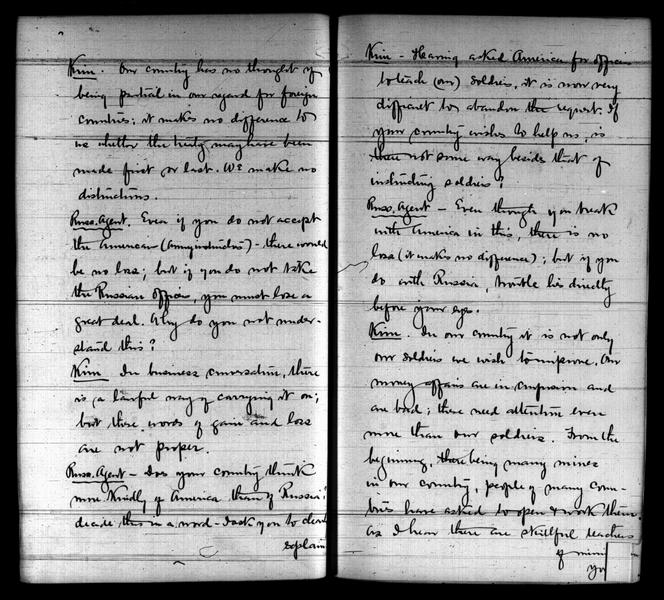 Kim. Our country has no thought of
being partial in our regard for foreign
countries; it makes no difference to
us whether the treaty may have been
made first or last. We make no
distinctions.
Russ. Agent. Even if you do not accept
the American (army instructors) - there would
be no loss; but if you do not take
the Russian officers you must lose a
great deal. Why do you not under-
stand this?
Kim In business conversation, there
is a lawful way of carrying it on;
but these words of gain and loss
are not proper.
Russ. Agent - Does your country think
more kindly of America than of Russia?
decide this in a word - I ask you to clearly
explain
Kim - Having asked America for officers
to teach (our) soldiers, it is now very
difficult to abandon the request. If
your country wishes to help us, is
there not some way besides that of
instructing soldiers?
Russ. Agent - Even though you break
with America in this, there is no
loss (it makes no difference); but if you
do with Russia, trouble lies directly
before your eyes.
Kim. In our country it is not only
our soldiers we wish to improve. Our
money affairs are in confusion and
are bad; these need attention even
more than our soldiers. From the
beginning, there being many mines
in our country, people of many coun-
tries have asked to open & work them.
As I hear there are skillful teachers
of mining